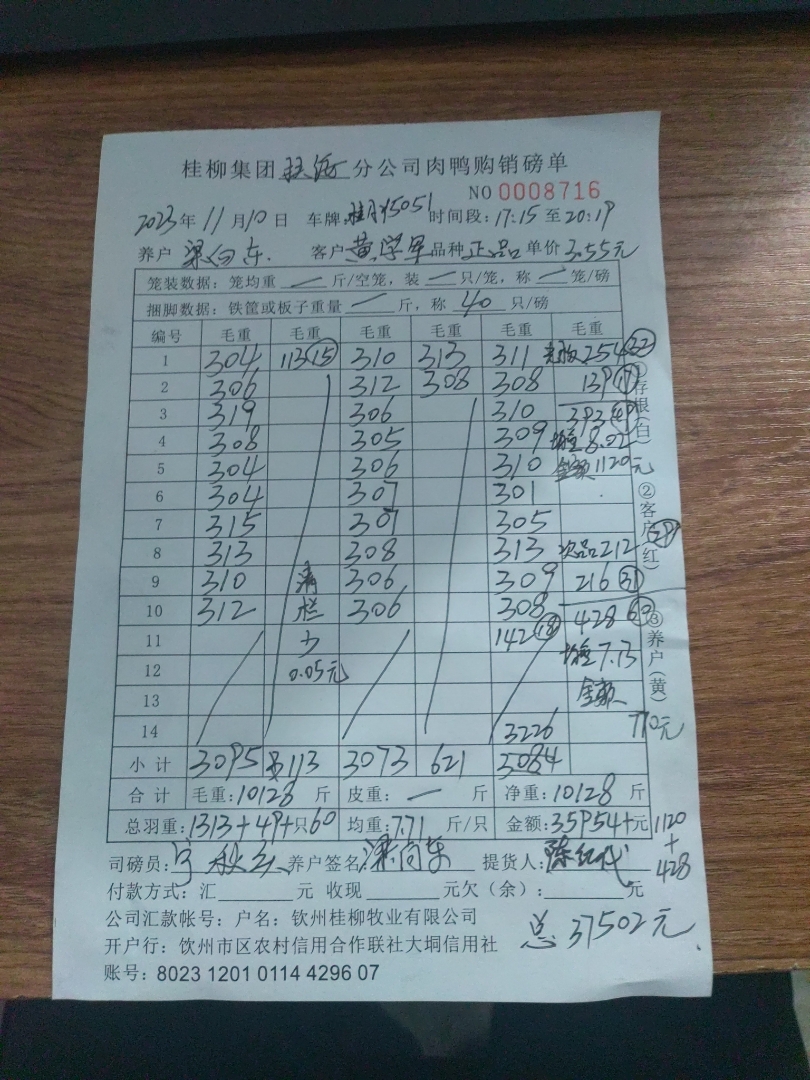 桂柳集团 分公司肉鸭购销磅单
NO 0008716
2023年11月10日 车牌: 时间段:17:15至20:19
养户 梁向东 客户 黄学军 品种 正品 单价 3.55元
笼装数据:笼均重 一 斤/空笼,装 一 只/笼,称 一 笼/磅
捆脚数据:铁筐或板子重量 一 斤,称 40 只/磅
编号 毛重 毛重 毛重 毛重 毛重 毛重
1 304 113⑮ 310 313 311 254
2 306 312 308 308 139⑰
3 319 306 310 392
4 308 305 309 均重8.02
5 304 306 310 金额1120元
6 304 307 301
7 315 307 305
8 313 308 313 次品212
9 310 满 306 309 216㉛
10 312 栏 306 308 428
11 少 142⑱ 均重7.13
12 0.05元
13 金额
14 3226 770元
小计 3095 113 3073 621 3084
合计 毛重:10128斤 皮重:一 斤 净重:10128斤
总羽重:1313+49+只60 均重:7.71斤/只 金额:35954+元 1120
+
428
司磅员: 养户签名:梁向东 提货人:
付款方式:汇 元 收现 元欠(余): 元
公司汇款帐号:户名:钦州桂柳牧业有限公司
开户行:钦州市区农村信用合作联社大垌信用社
账号:8023 1201 0114 4296 07
总 37502元
①存根(白)
②客户(红)
③养户(黄)